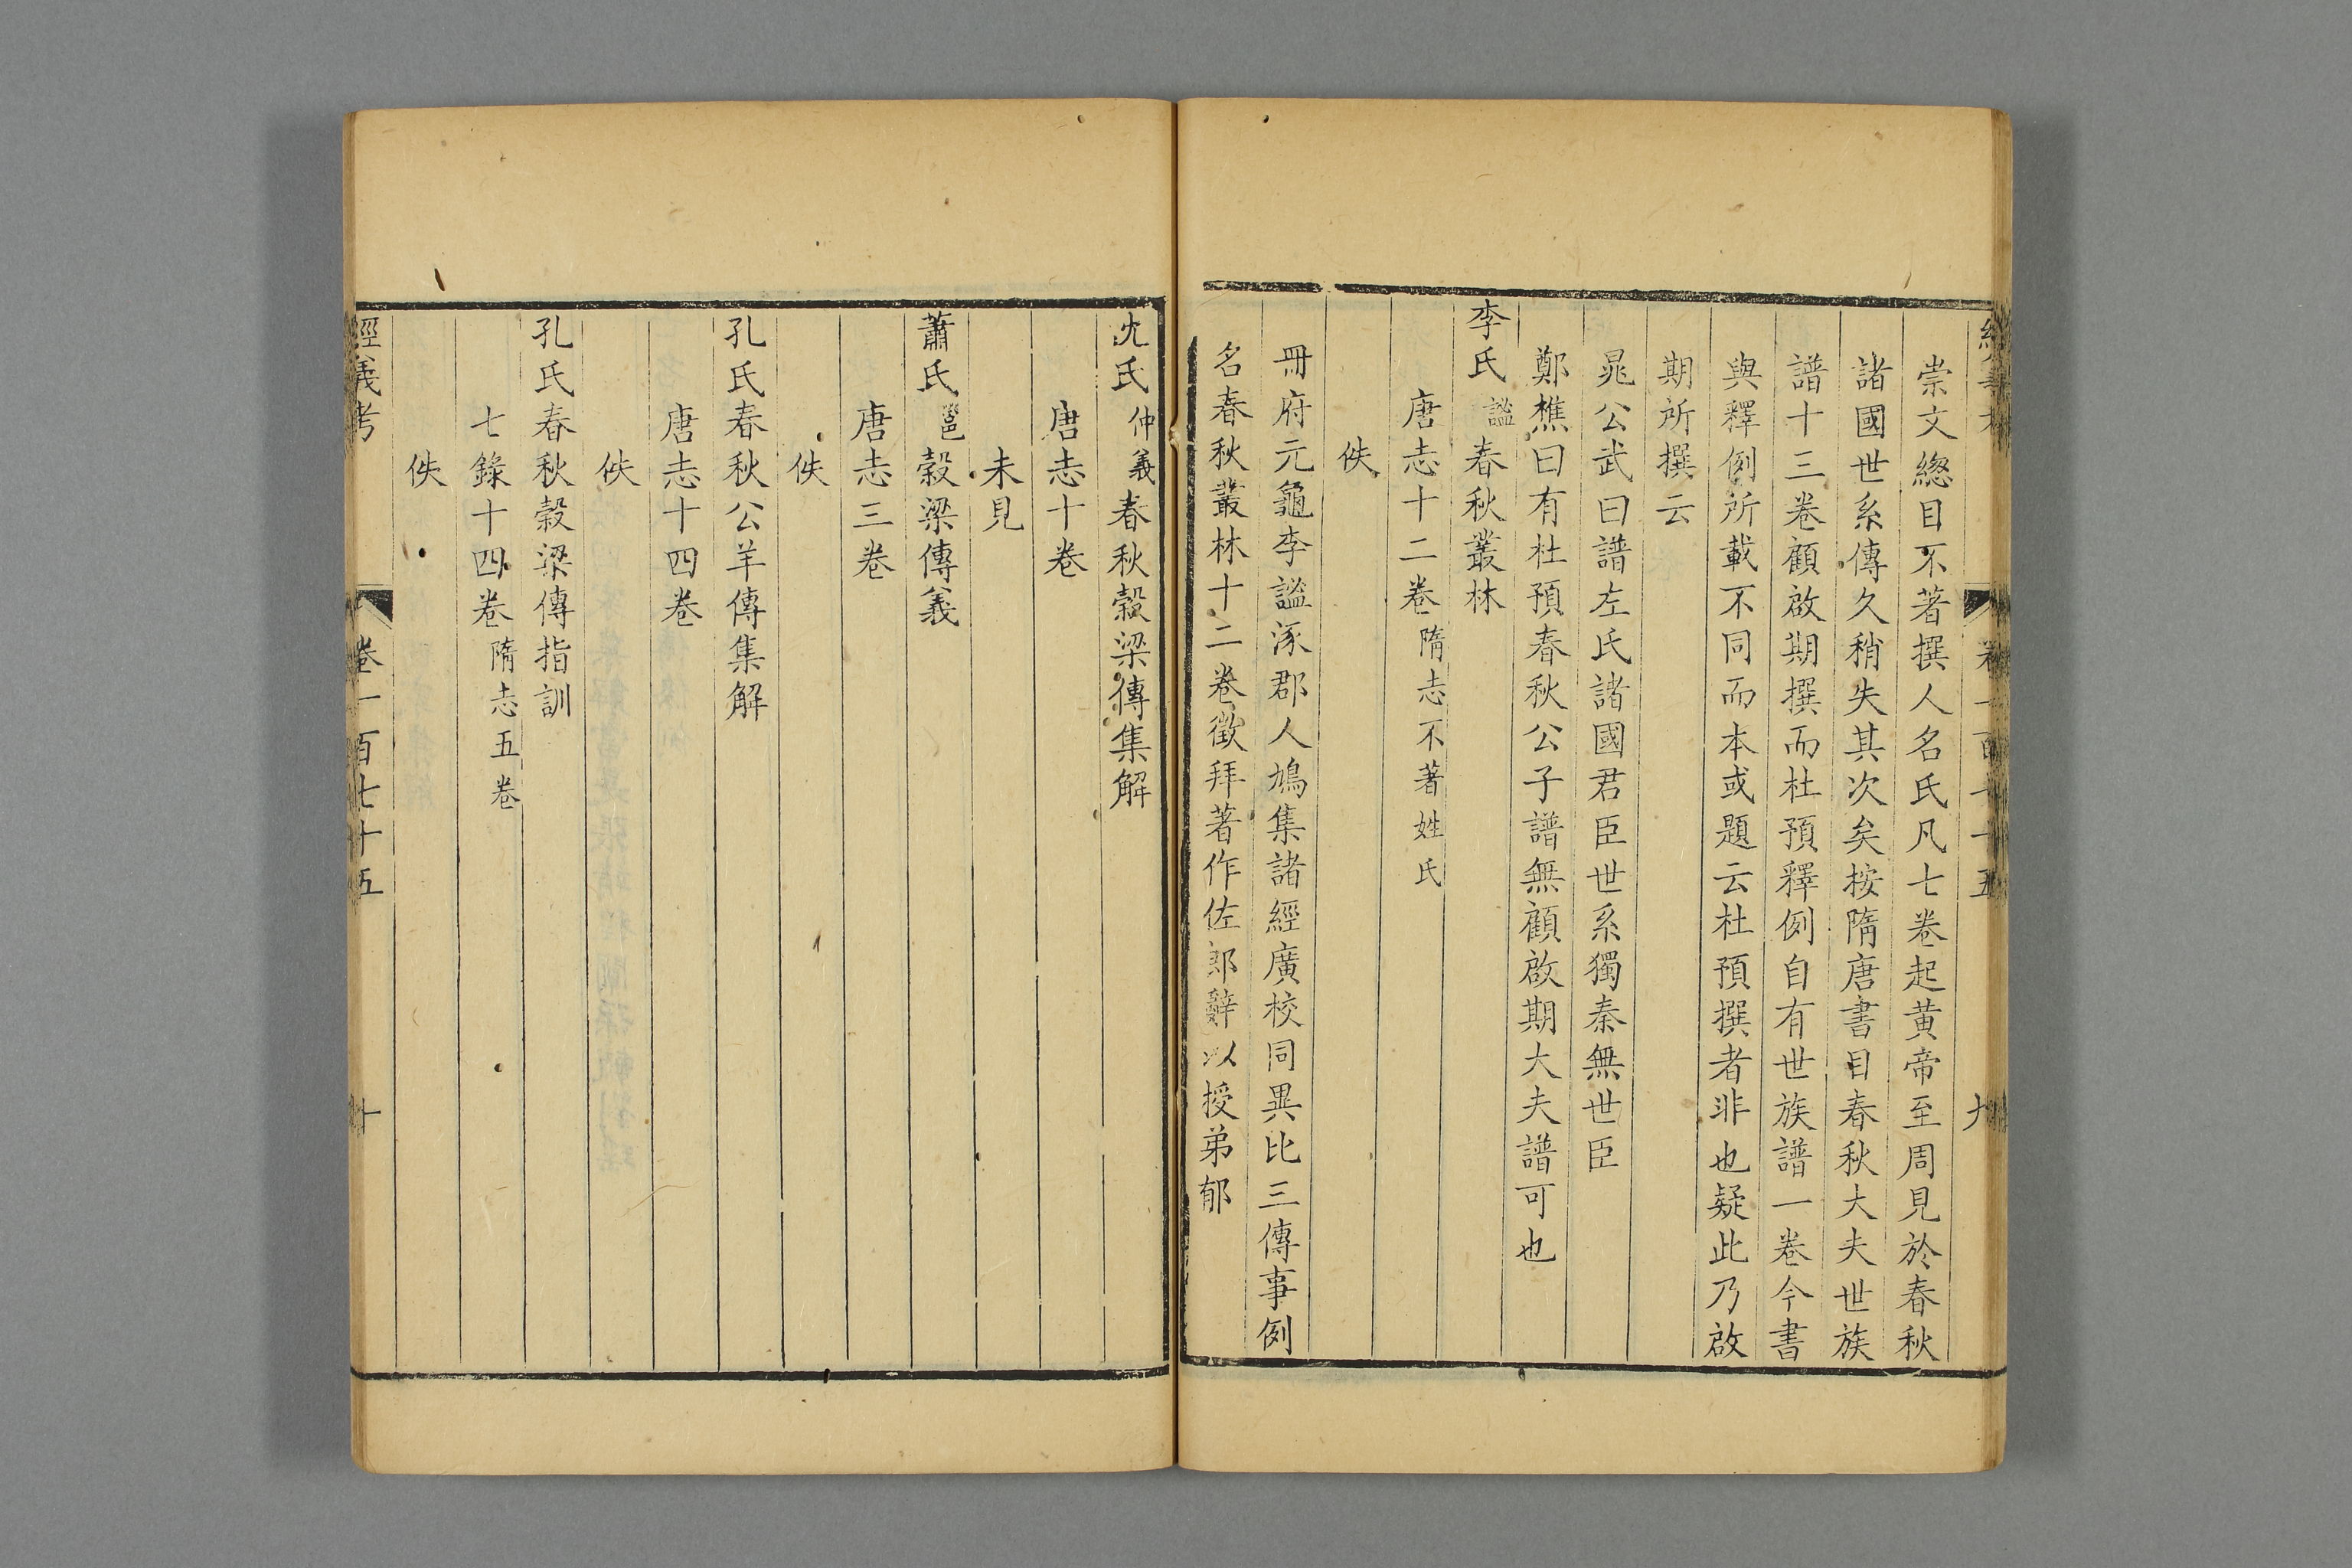 崇文總目不著撰人名氏凡七卷起黃帝至周見於春秋
諸國世系傳久稍失其次矣按隋唐書目春秋大夫世族
譜十三卷顧啟期撰而杜預釋例自有世族譜一卷今書
與釋例所載不同而本或題云杜預撰者非也疑此乃啟
期所撰云
晁公武曰譜左氏諸國君臣世系獨秦無世臣
鄭樵曰有杜預春秋公子譜無顧啟期大夫譜可也
李氏謐春秋叢林
唐志十二卷隋志不著姓氏
佚
冊府元龜李謐涿郡人鳩集諸經廣校同異比三傳事例
名春秋叢林十二卷徵拜著作佐郎辭以授弟郁
沈氏仲義春秋穀梁傳集解
唐志十卷
未見
蕭氏邕穀梁傳義
唐志三卷
佚
孔氏春秋公羊傳集解
唐志十四卷
佚
孔氏春秋穀梁傳指訓
七錄十四卷隋志五卷
佚
經義考 卷一百七十五 十